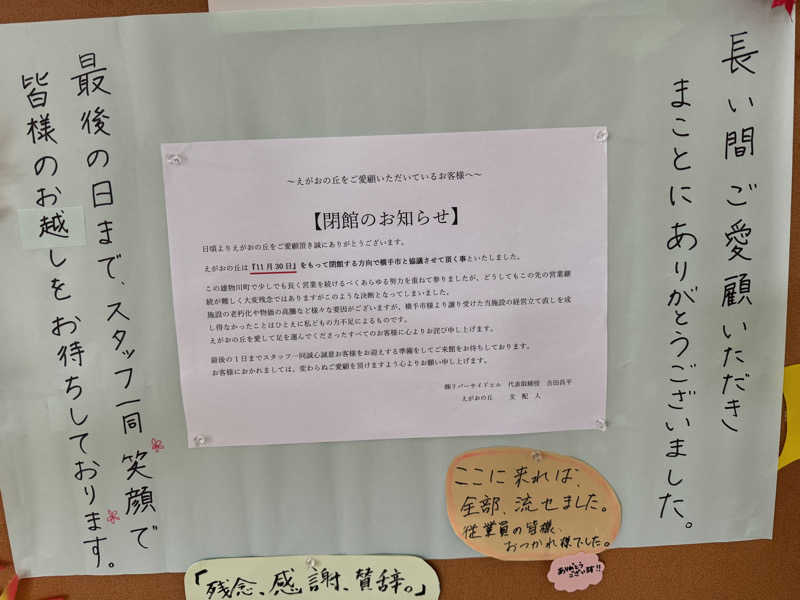 長い間ご愛顧いただき
まことにありがとうございました。
〜えがおの丘をご愛顧いただいているお客様へ〜
【閉館のお知らせ】
日頃よりえがおの丘をご愛顧頂き誠にありがとうございます。
えがおの丘は『11月30日』をもって閉館する方向で横手市と協議させて頂く事といたしました。
この雄物川町で少しでも長く営業を続けるべくあらゆる努力を重ねて参りましたが、どうしてもこの先の営業継
続が難しく大変残念ではありますがこのような決断となってしまいました。
施設の老朽化や物価の高騰など様々な要因がございますが、横手市様より譲り受けた当施設の経営立て直しを成
し得なかったことはひとえに私どもの力不足によるものです。
えがおの丘を愛して足を運んでくださったすべてのお客様に心よりお詫び申し上げます。
最後の1日までスタッフ一同誠心誠意お客様をお迎えする準備をしてご来館をお待ちしております。
お客様におかれましては、変わらぬご愛顧を頂けますよう心よりお願い申し上げます。
㈱リバーサイドヒル 代表取締役 吉田昌平
えがおの丘 支配人
最後の日まで、スタッフ一同 笑顔で
皆様のお越しをお待ちしております。
ここに来れば、
全部、流せました。
従業員の皆様、
おつかれ様でした。
ありがとう
ございます!!
「残念、感謝、賛辞。」